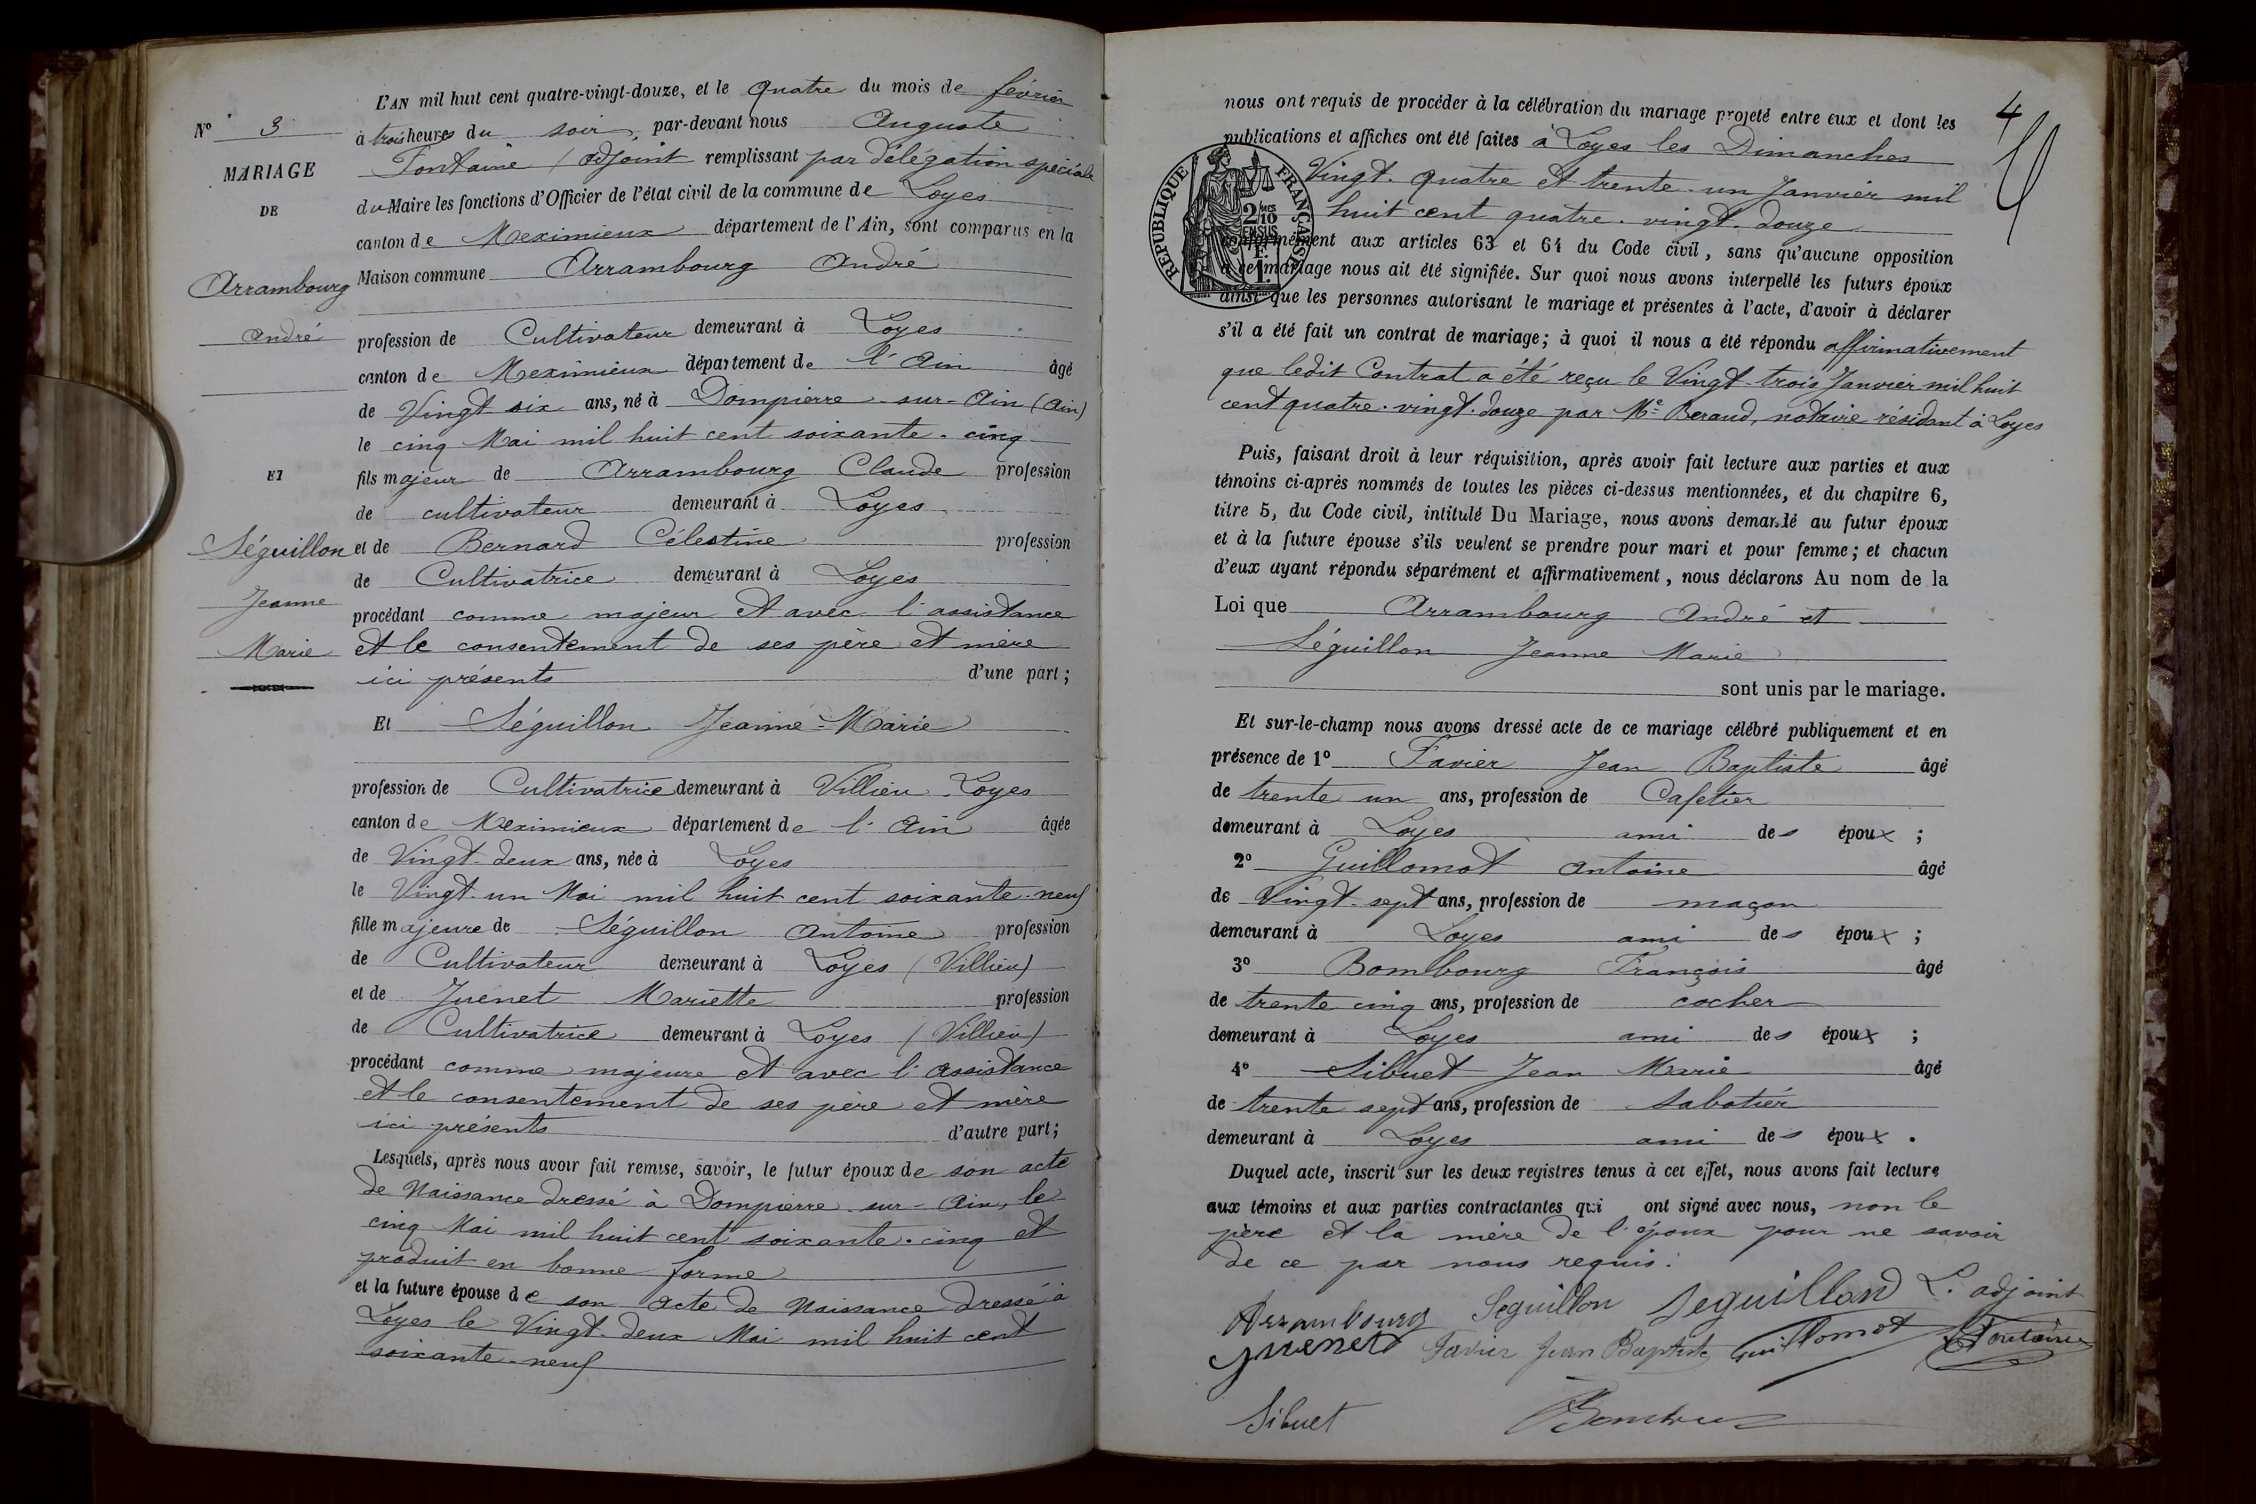 L'AN mil huit cent quatre-vingt-douze, et le quatre du mois de février
N° 3
à trois heures du soir, par-devant nous Auguste
Fontaine, adjoint remplissant par délégation spéciale
MARIAGE
DE
du Maire les fonctions d'Officier de l'état civil de la commune de Loyes
canton de Meximieux département de l'Ain, sont comparus en la
Maison commune Arrambourg André
Arrambourg
André
profession de Cultivateur demeurant à Loyes
canton de Meximieux département de l'Ain âgé
de Vingt six ans, né à Dompierre-sur-Ain (Ain)
le cinq Mai mil huit cent soixante-cinq
ET
fils majeur de Arrambourg Claude profession
de cultivateur demeurant à Loyes
Séguillon
Jeanne
Marie
et de Bernard Célestine profession
de Cultivatrice demeurant à Loyes
procédant comme majeur et avec l'assistance
et le consentement de ses père et mère
ici présents d'une part;
Et Séguillon Jeanne-Marie
profession de Cultivatrice demeurant à Villieu-Loyes
canton de Meximieux département de l'Ain âgée
de Vingt-deux ans, née à Loyes
le Vingt-un Mai mil huit cent soixante-neuf
fille majeure de Séguillon Antoine profession
de Cultivateur demeurant à Loyes (Villieu)
et de Juenet Mariette profession
de Cultivatrice demeurant à Loyes (Villieu)
procédant comme majeure et avec l'assistance
et le consentement de ses père et mère
ici présents d'autre part;
Lesquels, après nous avoir fait remise, savoir, le futur époux de son acte
de Naissance dressé à Dompierre-sur-Ain, le
cinq Mai mil huit cent soixante-cinq et
produit en bonne forme
et la future épouse de son acte de Naissance dressé à
Loyes le Vingt-deux Mai mil huit cent
soixante-neuf
4
nous ont requis de procéder à la célébration du mariage projeté entre eux et dont les
publications et affiches ont été faites à Loyes les Dimanches
Vingt-quatre et trente-un Janvier mil
huit cent quatre-vingt-douze
RÉPUBLIQUE FRANÇAISE
2/10 EN SUS
F. 1
conformément aux articles 63 et 64 du Code civil, sans qu'aucune opposition
à ce mariage nous ait été signifiée. Sur quoi nous avons interpellé les futurs époux
ainsi que les personnes autorisant le mariage et présentes à l'acte, d'avoir à déclarer
s'il a été fait un contrat de mariage; à quoi il nous a été répondu affirmativement
que ledit Contrat a été reçu le Vingt-trois Janvier mil huit
cent quatre-vingt-douze par Me Beraud, notaire résidant à Loyes
Puis, faisant droit à leur réquisition, après avoir fait lecture aux parties et aux
témoins ci-après nommés de toutes les pièces ci-dessus mentionnées, et du chapitre 6,
titre 5, du Code civil, intitulé Du Mariage, nous avons demandé au futur époux
et à la future épouse s'ils veulent se prendre pour mari et pour femme; et chacun
d'eux ayant répondu séparément et affirmativement, nous déclarons Au nom de la
Loi que Arrambourg André et
Séguillon Jeanne Marie
sont unis par le mariage.
Et sur-le-champ nous avons dressé acte de ce mariage célébré publiquement et en
présence de 1° Favier Jean Baptiste âgé
de trente un ans, profession de Cafetier
demeurant à Loyes ami des époux;
2° Guillomot Antoine âgé
de Vingt-sept ans, profession de maçon
demeurant à Loyes ami des époux;
3° Bombourg François âgé
de trente cinq ans, profession de cocher
demeurant à Loyes ami des époux;
4° Sibuet Jean Marie âgé
de trente sept ans, profession de sabotier
demeurant à Loyes ami des époux.
Duquel acte, inscrit sur les deux registres tenus à cet effet, nous avons fait lecture
aux témoins et aux parties contractantes qui ont signé avec nous, non le
père et la mère de l'époux pour ne savoir
de ce par nous requis.
Arrambourg Seguillon Seguillon L. adjoint
Juenet Favier Jean Baptiste Guillomot Fontaine
Sibuet